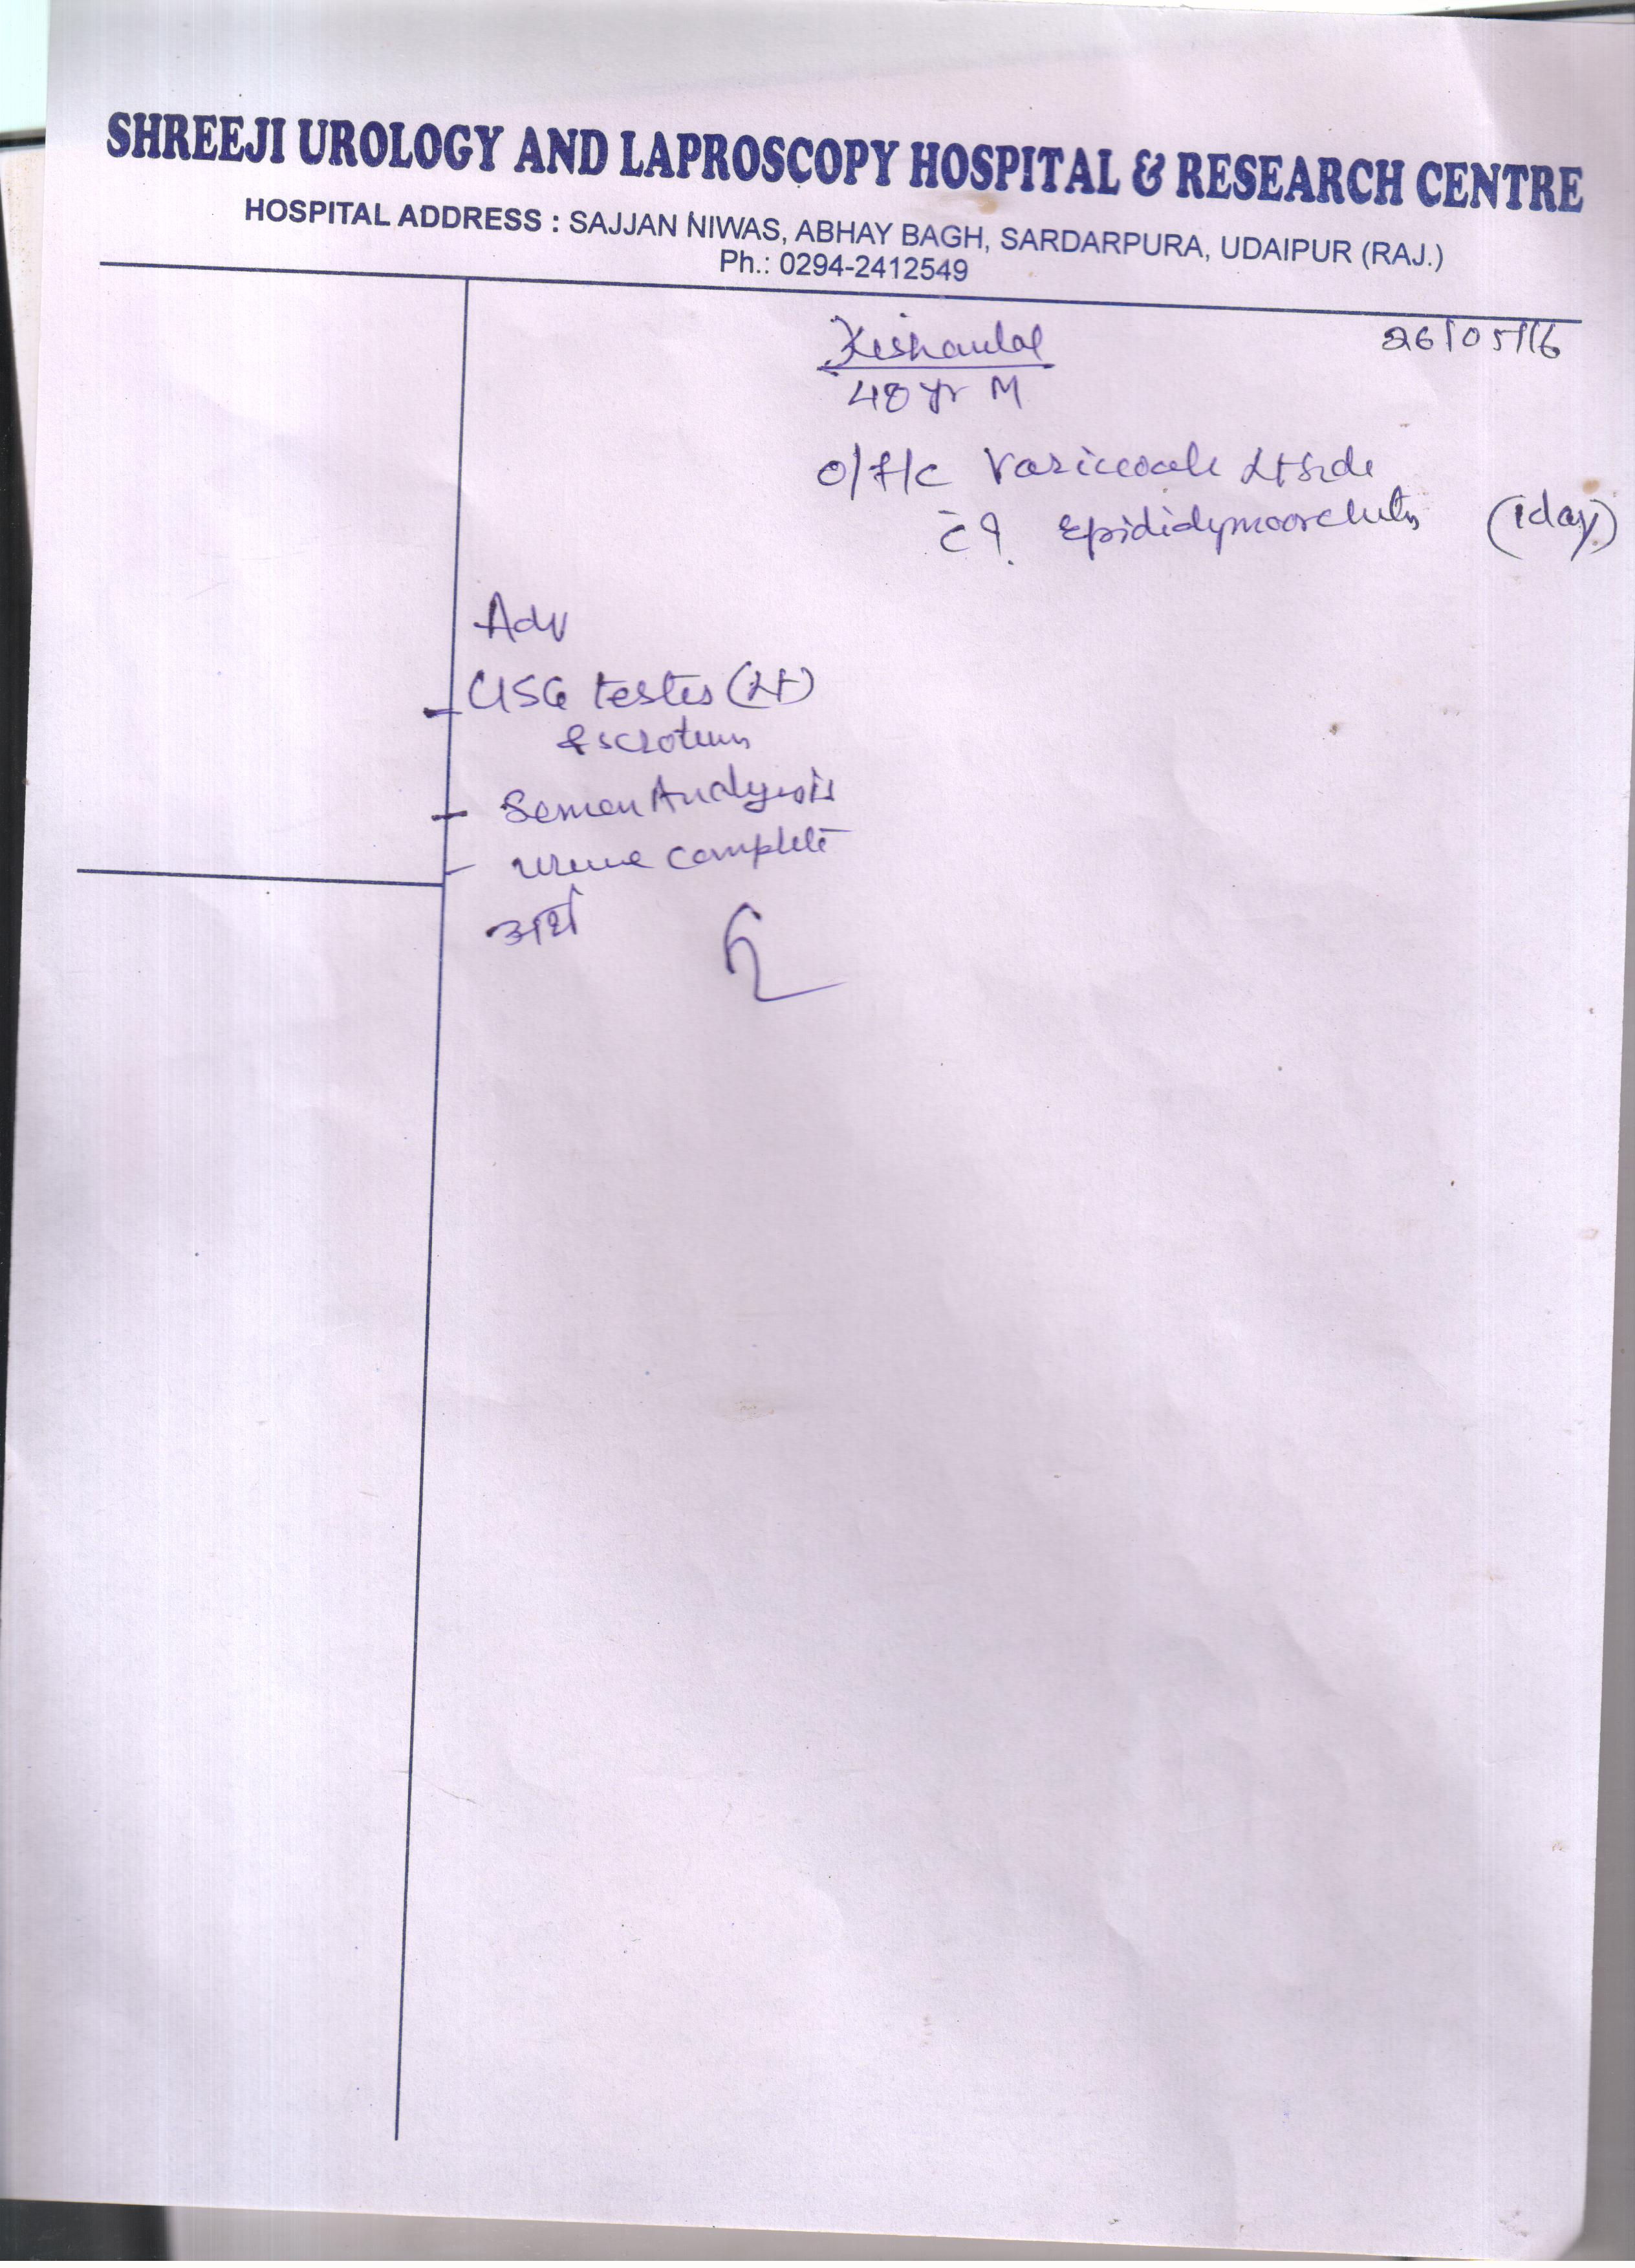 SHREEJI UROLOGY AND LAPROSCOPY HOSPITAL & RESEARCH CENTRE
HOSPITAL ADDRESS : SAJJAN NIWAS, ABHAY BAGH, SARDARPURA, UDAIPUR (RAJ.)
Ph.: 0294-2412549
26/05/16
Kishanlal
48 yr M
O/F/C Varicocele Lt side
c̄ ?. Epididymoorchitis (1day)
Adv
- USG testes (Lt)
& scrotum
- Semen Analysis
- urine complete